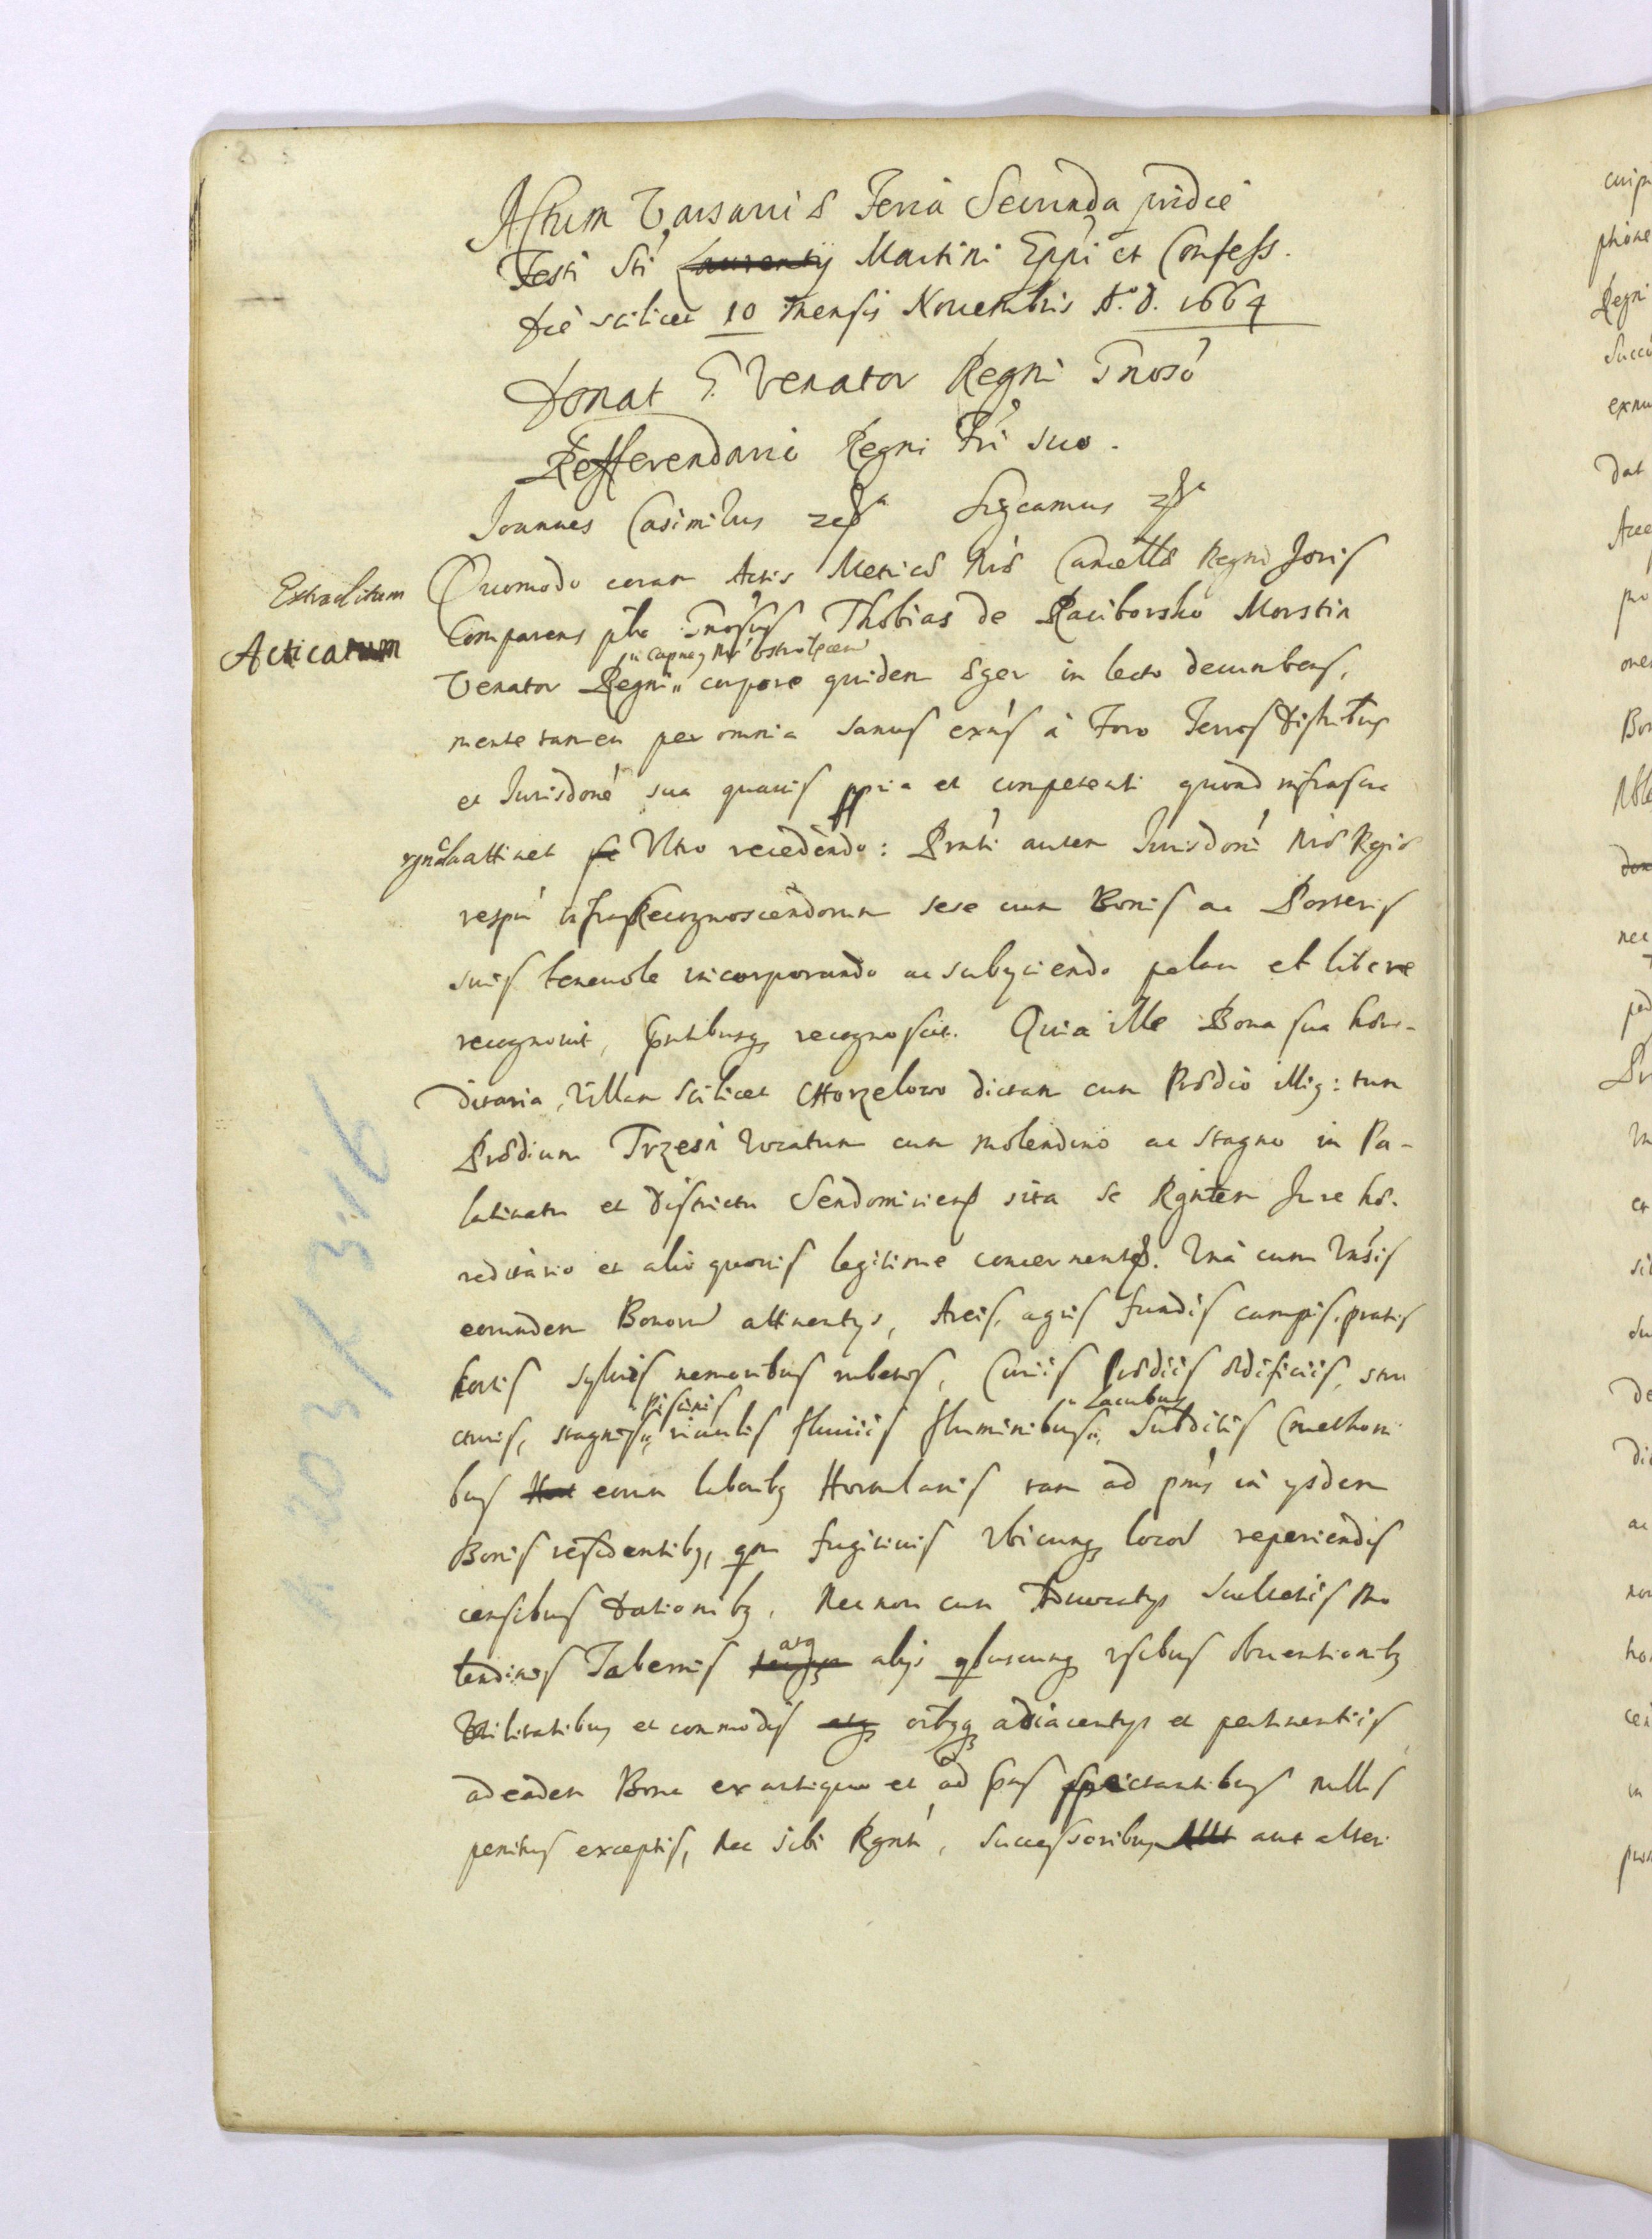 Actum Varsaviæ Feria Secunda pridie
Festi Sti Laurentij Martini Eppi et Confess.
die scilicet 10 mensis Novembris A.D. 1664
Donat G. Venator Regni Gnoso
Refferendario Regni Fri suo.
Joannes Casimirus Significamus
Extraditum
Acticatum
Quomodo coram Actis Metricæ Nræ Cancellæ Regni Joris
Comparens Gnosus Thobias de Raciborsko Morstin
Venator Regni corpore quidem æger in lecto decumbens,
mente tamen per omnia sanus exns à Foro Terris Districtus
et Jurisdone sua quavis ppria et competenti quoad infrascr
attinet se Vltro recedendo: Prnti autem Jurisdoni Nræ Rgiæ
respu infra Recognoscendorum sese cum Bonis ac Posteris
suis incorporando ac subyciendo palam et libere
recognovit, pntibusq recognoscit. Quia ille Bona sua hære-
ditaria, Villam scilicet CHorzelowo dictam cum Prædio illiq: tum
Prædium Trzesń vocatum cum molendino ac stagno in Pa-
latinatu et districtu Sendomiriens sita se Rgntem Jure hæ-
reditario et alio quovis legitime concernente. Vnà cum Vnsis
eorundem Bonorum attinentys, Areis, agris fundis campis, pratis
hortis sylvis nemoribus rubetis, Curiis Prædiis ædificiis, stru
piscinis Lacubus
cturis, stagnis rivulis fluviis fluminibus, Subditis Cmethoni
bus eorum laboribq Hortulanis tam ad pns in ysdem
Bonis residentibq, qm fugitivis vbicunq locor reperiendis
censibus dationibq, Nec non cum Advocatys Scultetis Mo
atq
lendinis Tabernis alijs qbuscunq vsibus obventionibq
Vtilitatibus et commodis atq oibqq adiacentys et pertinentiis
ad eadem Bona ex antiquo et ad pns spectantibus nullis
penitus exceptis, Nec sibi Rgnti, Successoribus aut alteri